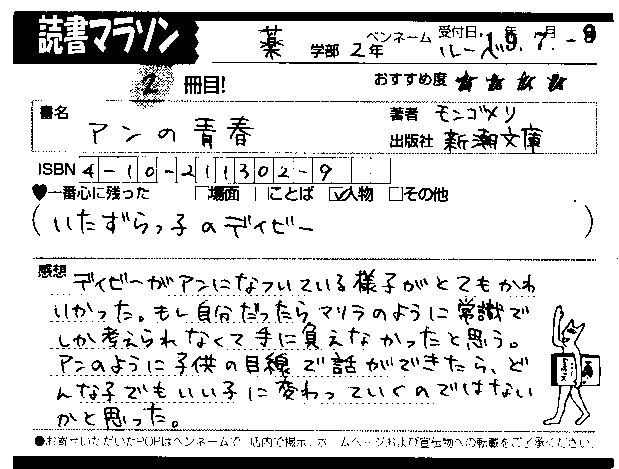 読書マラソン
薬 学部 2年 ペンネーム ルーベ 受付日 19.7.-9 年 月
2 冊目! おすすめ度 ★ ★ ★ ★
書名 アンの青春 著者 モンゴメリ
出版社 新潮文庫
ISBN 4-10-211302-9
♥一番心に残った □場面 □ことば ☑人物 □その他
(いたずらっ子のデイビー)
感想 デイビーがアンになついている様子がとてもかわ
いかった。もし自分だったらマリラのように常識で
しか考えられなくて手に負えなかったと思う。
アンのように子供の目線で話ができたら、ど
んな子でもいい子に変わっていくのではない
かと思った。
●お寄せいただいたPOPはペンネームで、店内で掲示、ホームページおよび宣伝物への転載をご了承ください。